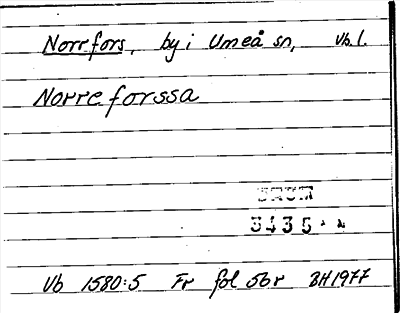 Norrfors, by i Umeå sn, Vb. l.
Norre forssa
3435
Vb 1580:5 Fr fol 5br BH1977